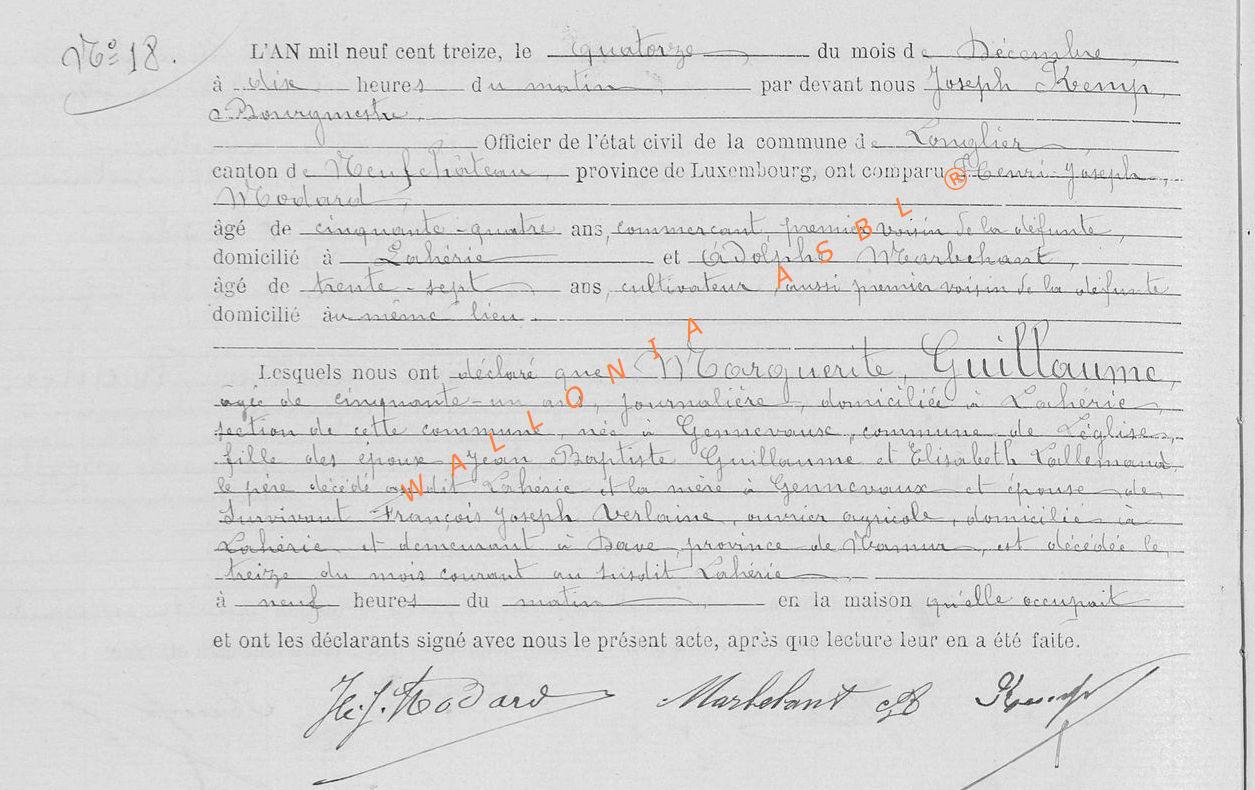 Nº 18.
L'AN mil neuf cent treize, le quatorze du mois de Décembre,
à dix heures du matin, par devant nous Joseph Kemp,
Bourgmestre,
Officier de l'état civil de la commune de Longlier,
canton de Neufchâteau, province de Luxembourg, ont comparu Henri-Joseph,
Modard,
âgé de cinquante-quatre ans, commerçant, premier voisin de la défunte,
domicilié à Lahérie et Adolphe Marbehant,
âgé de trente-sept ans, cultivateur, aussi premier voisin de la défunte
domicilié au même lieu.
Lesquels nous ont déclaré que Marguerite, Guillaume,
agée de cinquante-un ans, journalière, domiciliée à Lahérie,
section de cette commune, née à Gennevaux, commune de Léglise,
fille des époux Jean Baptiste Guillaume et Elisabeth Lallemand
le père décédé au dit Lahérie et la mère à Gennevaux et épouse de
survivant François Joseph Verlaine, ouvrier agricole, domicilié à
Lahérie et demeurant à Dave, province de Namur, est décédée le
treize du mois courant au susdit Lahérie
à neuf heures du matin, en la maison qu'elle occupait
et ont les déclarants signé avec nous le présent acte, après que lecture leur en a été faite.
H. J. Modard Marbehant Ad Kemp
WALLONIA ASBL ®